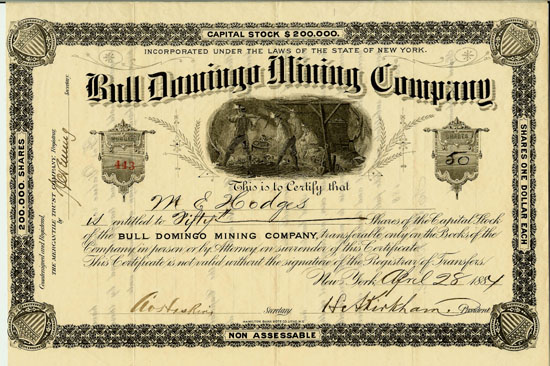 CAPITAL STOCK $200.000.
INCORPORATED UNDER THE LAWS OF THE STATE OF NEW YORK.
Bull Domingo Mining Company
443
SHARES
50
200.000 SHARES
SHARES ONE DOLLAR EACH
Countersigned and Registered,
THE MERCANTILE TRUST COMPANY, Registrar,
by
Secretary.
This is to Certify that
E Hodges
is entitled to Fifty Shares of the Capital Stock
of the BULL DOMINGO MINING COMPANY, transferable only on the Books of the
Company in person or by Attorney on surrender of this Certificate.
This Certificate is not valid without the signature of the Registrar of Transfers.
New York April 28 1884
Secretary
H. Kirkham
President
NON ASSESSABLE